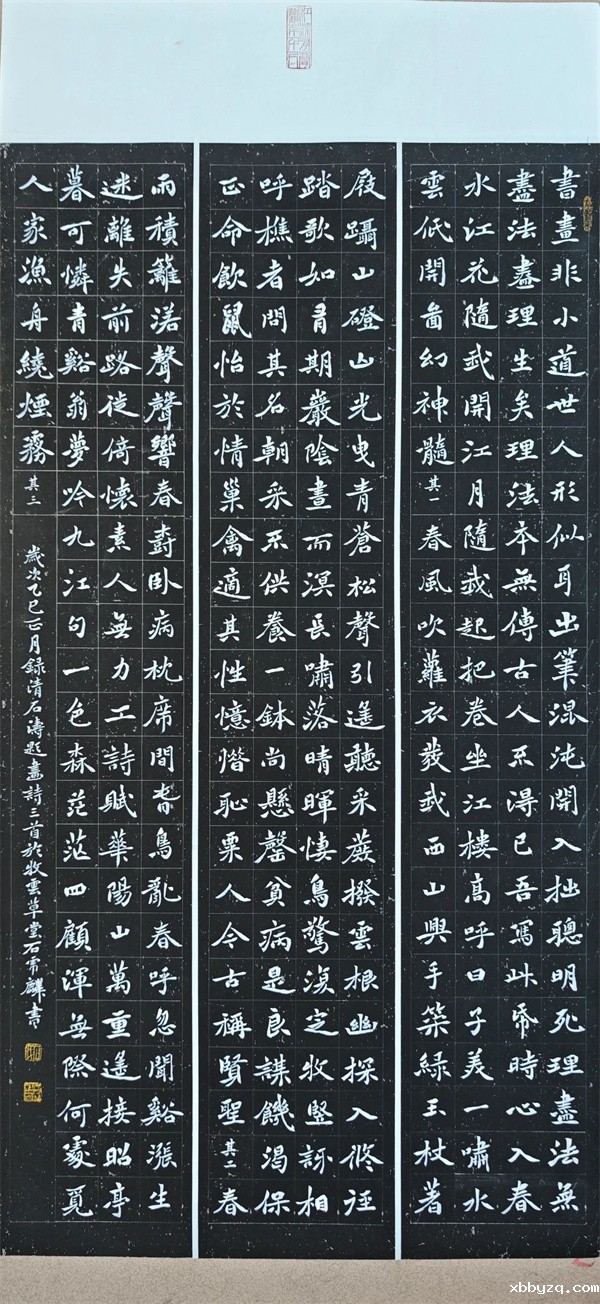 書畫非小道世人形似耳出筆混沌開入拙聰明死理盡法無
盡法盡理生矣理法本無傳古人不得已吾寫此紙時心入春
水江花隨我開江月隨我起把卷坐江樓高呼曰子美一嘯水
雲低開圖幻神髓其一春風吹蘿衣發我西山興手策綠玉杖著
屐躡山磴山光曳青蒼松聲引遥聽采蕨撥雲根幽探入修徑
踏歌如有期巖陰晝而溟長嘯落晴暉悽鳥驚復定牧豎訝相
呼樵者問其名朝采不供養一鉢尚懸罄貧病是良謀饑渴保
正命飲鼠怡於情巢禽適其性憶惜恥栗人令古稱賢聖其二春
雨積籬落聲聲響春濤臥病枕席間春鳥亂春呼忽聞谿漲生
迷離失前路徙倚懷素人無力工詩賦華陽山萬重遥接昭亭
暮可憐青谿翁夢吟九江句一色森茫茫四顧渾無際何處覓
人家漁舟繞煙霧其三
歲次乙巳正月錄清石濤題畫詩三首於牧雲草堂石常麟書
xbbyzq.com